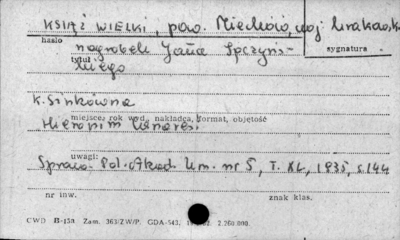 KSIĄŻ WIELKI, pow. Miechów, woj. krakowsk.
hasło
sygnatura
nagrobek Jana Spczyńs-
tytuł
kiego
K. Sinkówna
miejsce, rok wyd., nakładca, format, objętość
Hieronim Canavesi
uwagi:
Spraw. Pol. Akad. Um. nr 5, T. XL, 1935, s. 144
nr inw.
znak klas.
CWD II-13a Zam. 363/ZW/P. GDA-543, 2.260.000.